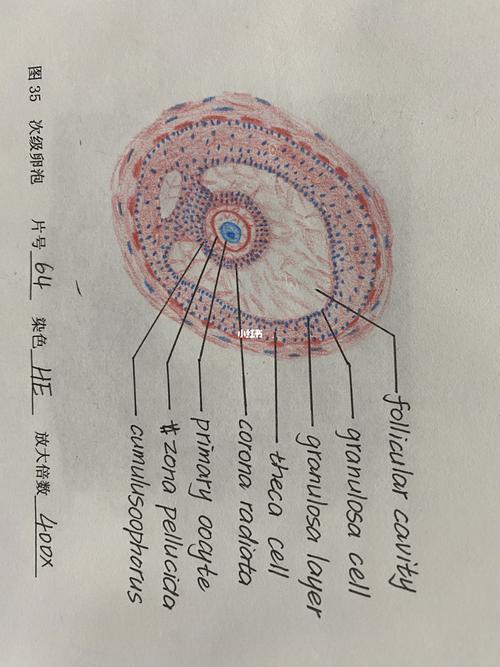 follicular cavity
granulosa cell
granulosa layer
theca cell
corona radiata
primary oocyte
#zona pellucida
cumullusoophorus
图 35 次级卵泡 片号 64 染色 HE 放大倍数 400X
小红书